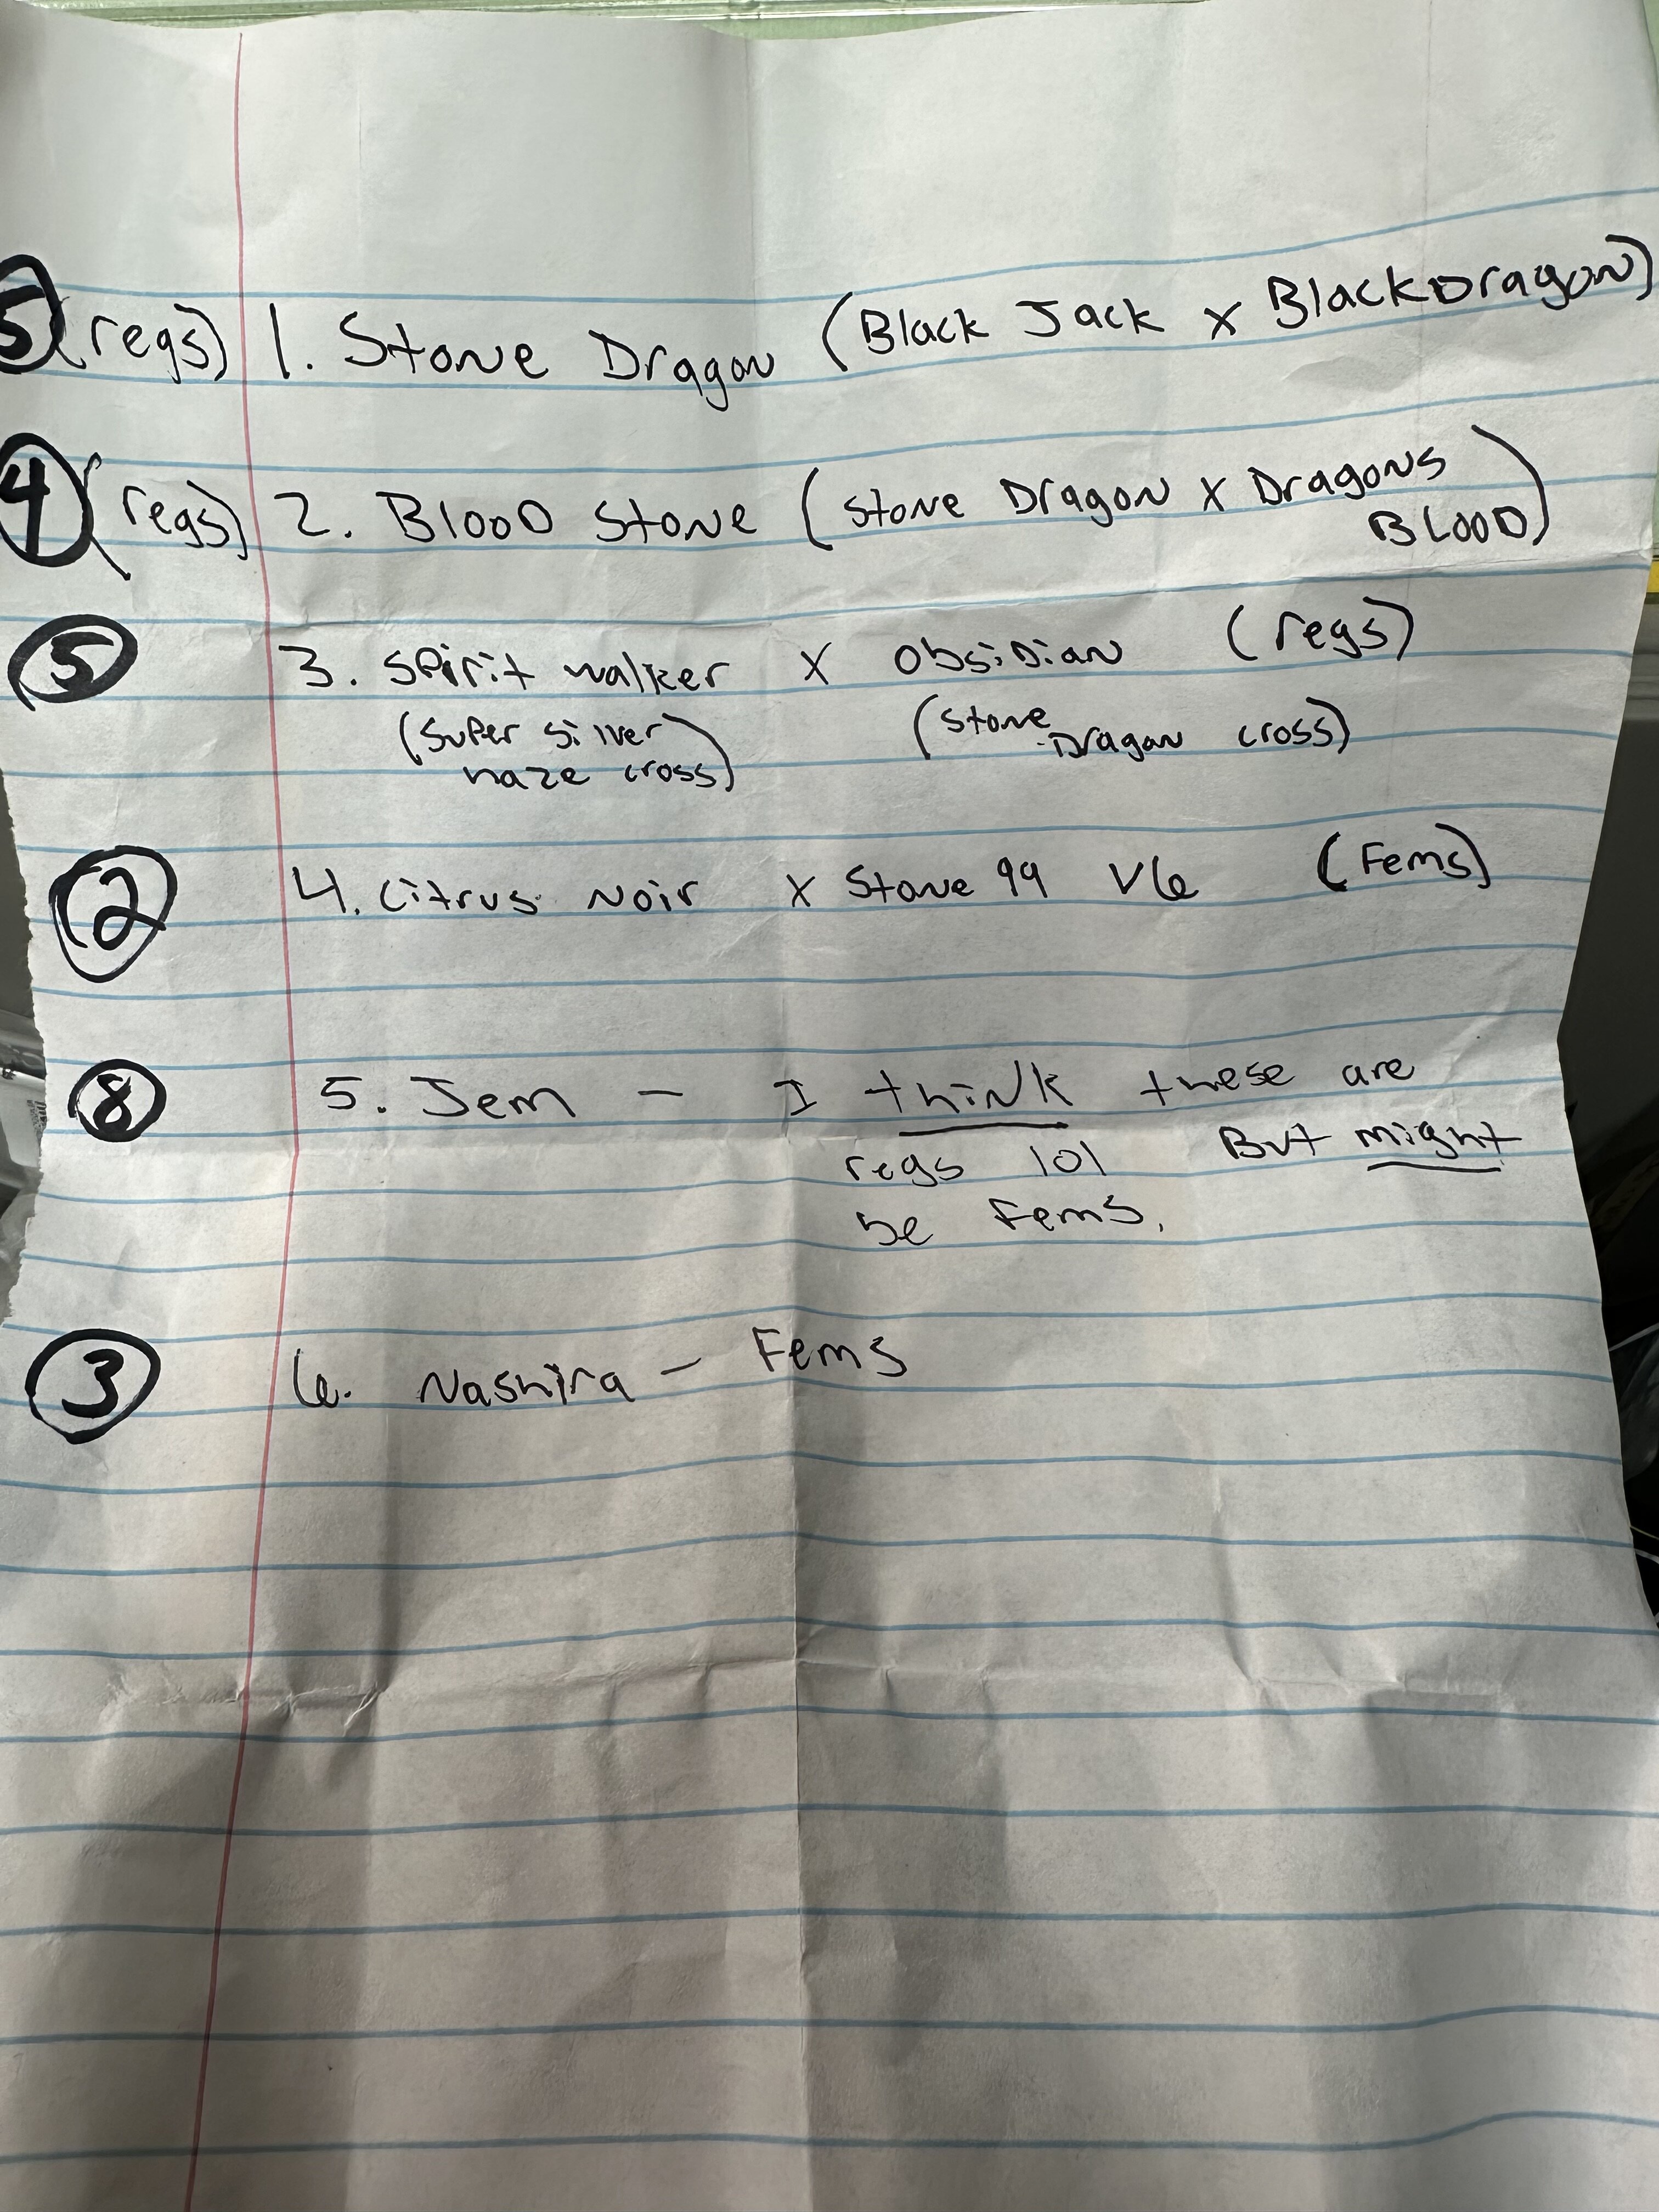 5 (regs) 1. Stone Dragon (Black Jack x Black Dragon)
4 (regs) 2. Blood Stone (Stone Dragon x Dragons
Blood)
5 3. Spirit walker x Obsidian (regs)
(super silver haze cross) (Stone Dragon cross)
2 4. Citrus Noir x Stone 99 V6 (Fems)
8 5. Jem - I think these are
regs lol But might
be Fems.
3 6. Nashira - Fems